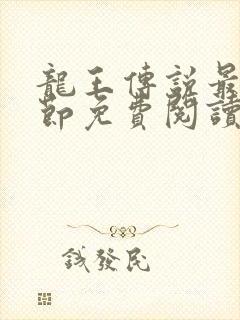 龍王傳說最
節免費閱讀
錢發民